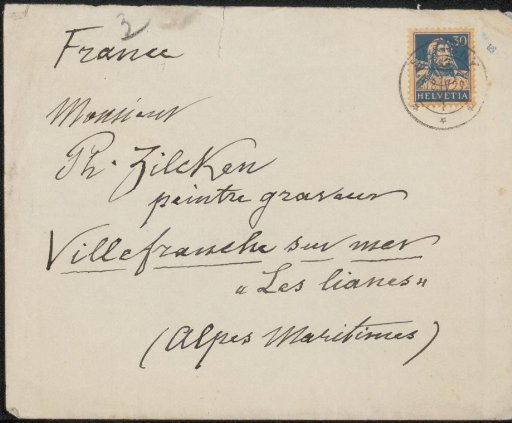 2
France
30
HELVETIA
Monsieur
Ph. Zilcken
peintre graveur
Villefranche sur mer
"Les lianes"
(Alpes Maritimes)